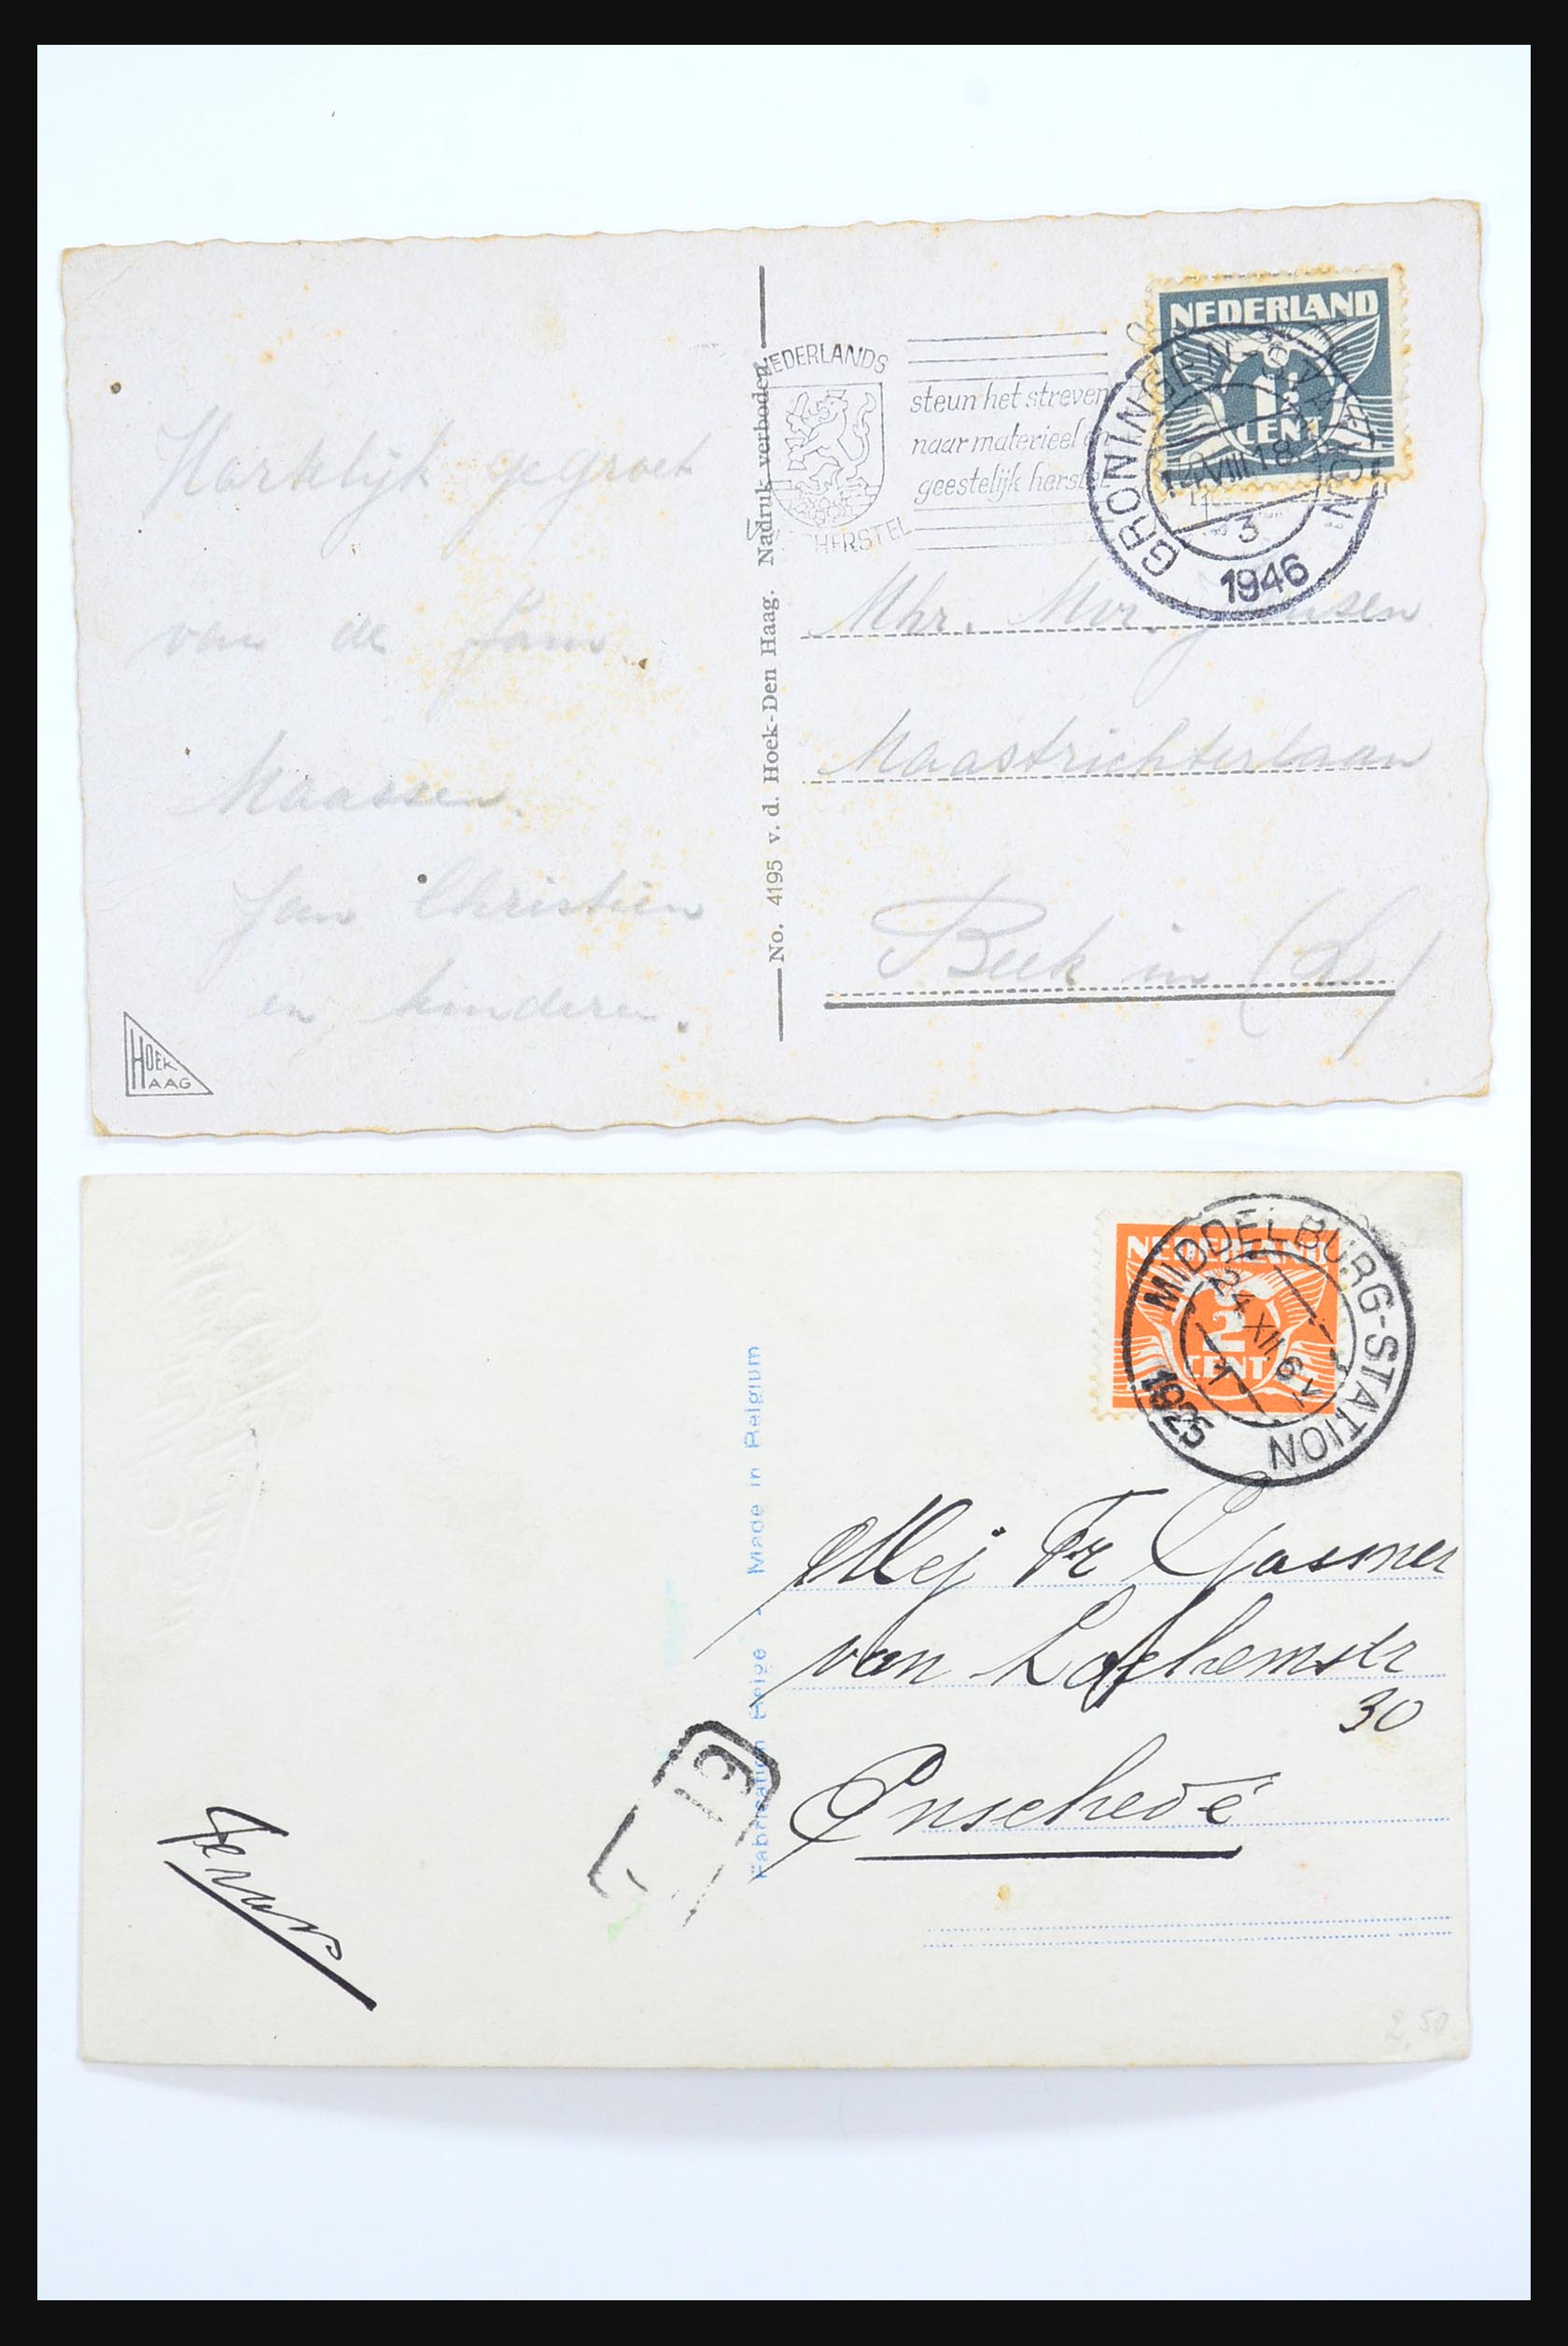 NEDERLAND
1½
CENT
GRONINGEN-STATION
18
3
1946
NEDERLANDS
HERSTEL
steun het streven
naar materieel en
geestelijk herstel
Hartelijk gegroet
van de Fam.
Maassen.
Jan Christien
en kinderen.
Mhr. Mvr. Jansen
Maastrichterlaan
Beek in (L)
No. 4195 v. d. Hoek-Den Haag. Nadruk verboden.
HOEK
HAAG
NEDERLAND
2
CENT
MIDDELBURG-STATION
24 XII 6
1925
Fabrication Belge - Made in Belgium
Mej Fr Gassner
van Lochemstr
30
Enschedé
2,50